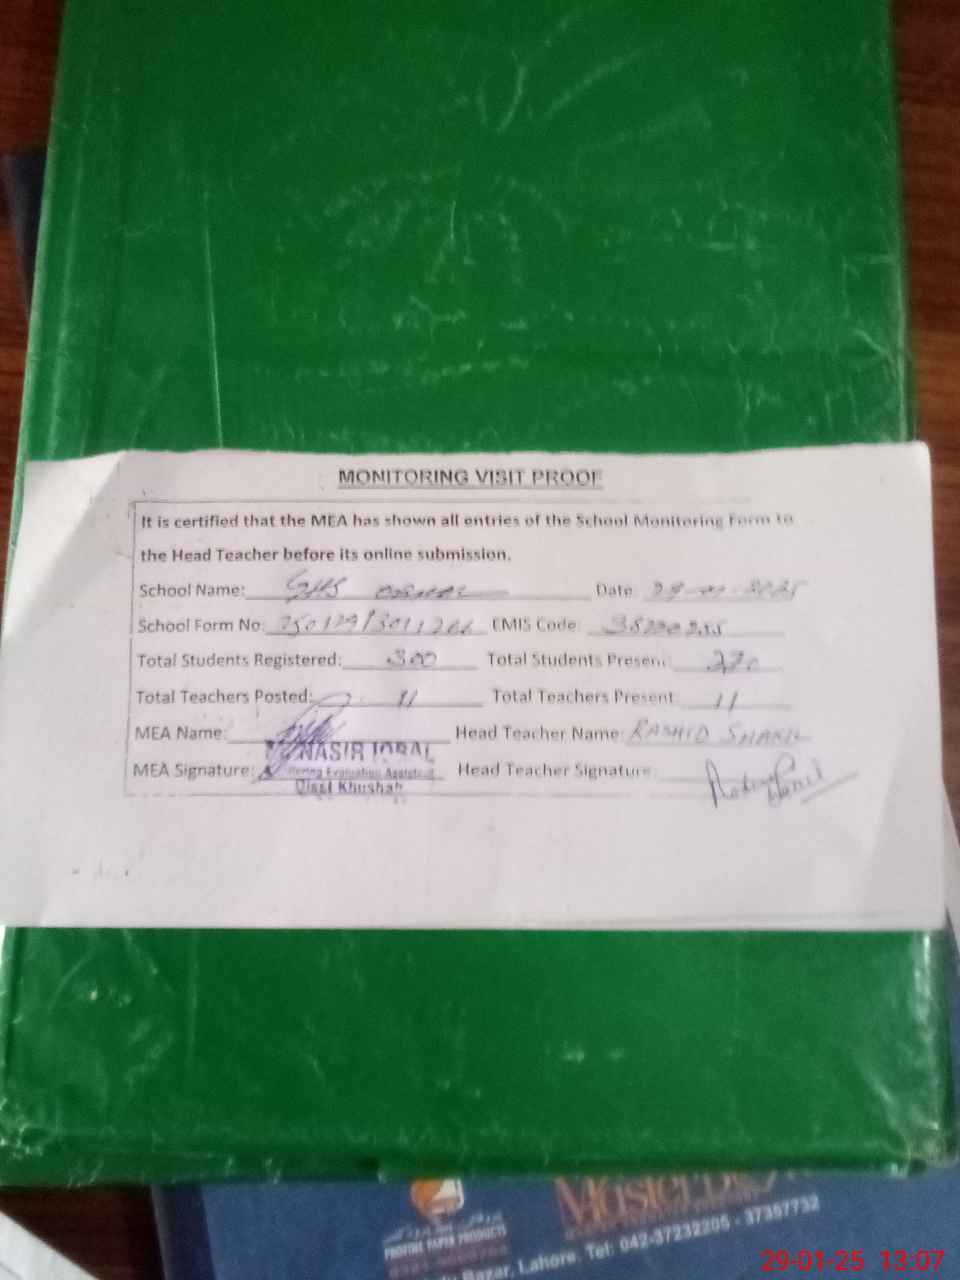 MONITORING VISIT PROOF
It is certified that the MEA has shown all entries of the School Monitoring Form to
the Head Teacher before its online submission.
School Name: GHS Date: 29-01-2025
School Form No: EMIS Code:
Total Students Registered: 300 Total Students Present: 270
Total Teachers Posted: 11 Total Teachers Present 11
MEA Name: Head Teacher Name: RASHID SHAKIL
NASIR IQBAL
MEA Signature: Head Teacher Signature:
Evaluation Assistant
Distt Khushab
PROFINE PAPER PRODUCTS
Bazar, Lahore. Tel: 042-37232205 - 37357732
29-01-25 13:07